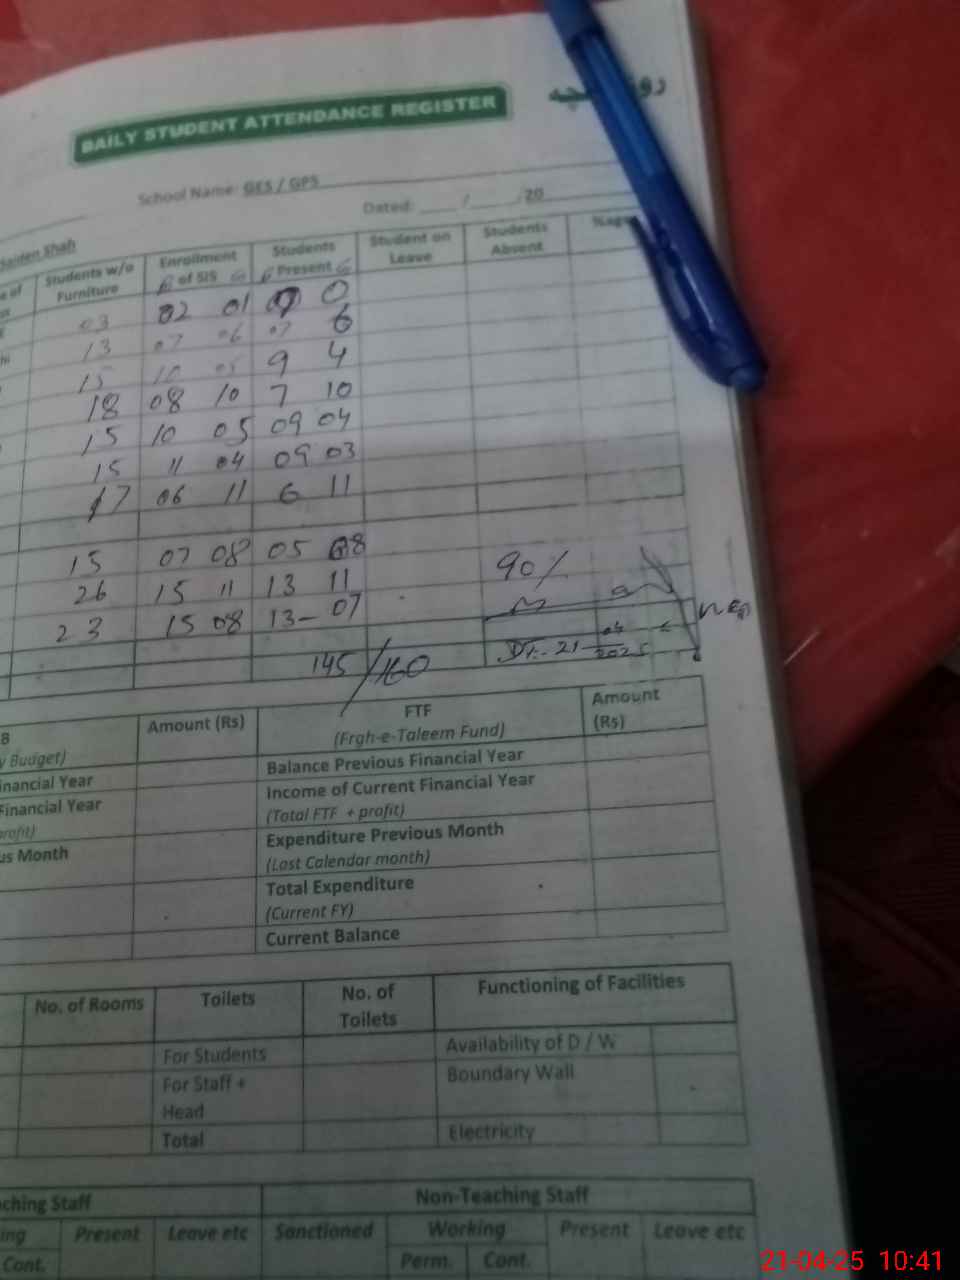 DAILY STUDENT ATTENDANCE REGISTER
School Name: GES / GPS
Dated: ____ / ____ /20
Saiden Shah
Students w/o Furniture | Enrollment B of SIS G | Students B Present G | Student on Leave | Students Absent
03 02 01 0
13 07 06 07 6
15 10 05 9 4
18 08 10 7 10
15 10 05 09 04
15 11 04 09 03
17 06 11 6 11
15 07 08 05 08
26 15 11 13 11
23 15 08 13- 07
90%
145/160
Dt:- 21-04-2025
Amount (Rs) | FTF (Frgh-e-Taleem Fund) | Amount (Rs)
y Budget)
inancial Year | Balance Previous Financial Year
Financial Year | Income of Current Financial Year
profit) | (Total FTF + profit)
us Month | Expenditure Previous Month
(Last Calendar month)
Total Expenditure
(Current FY)
Current Balance
No. of Rooms | Toilets | No. of Toilets | Functioning of Facilities
For Students | Availability of D / W
For Staff + Head | Boundary Wall
Total | Electricity
ching Staff | Non-Teaching Staff
ing | Present | Leave etc | Sanctioned | Working | Present | Leave etc
Cont. | Perm. | Cont.
21-04-25 10:41